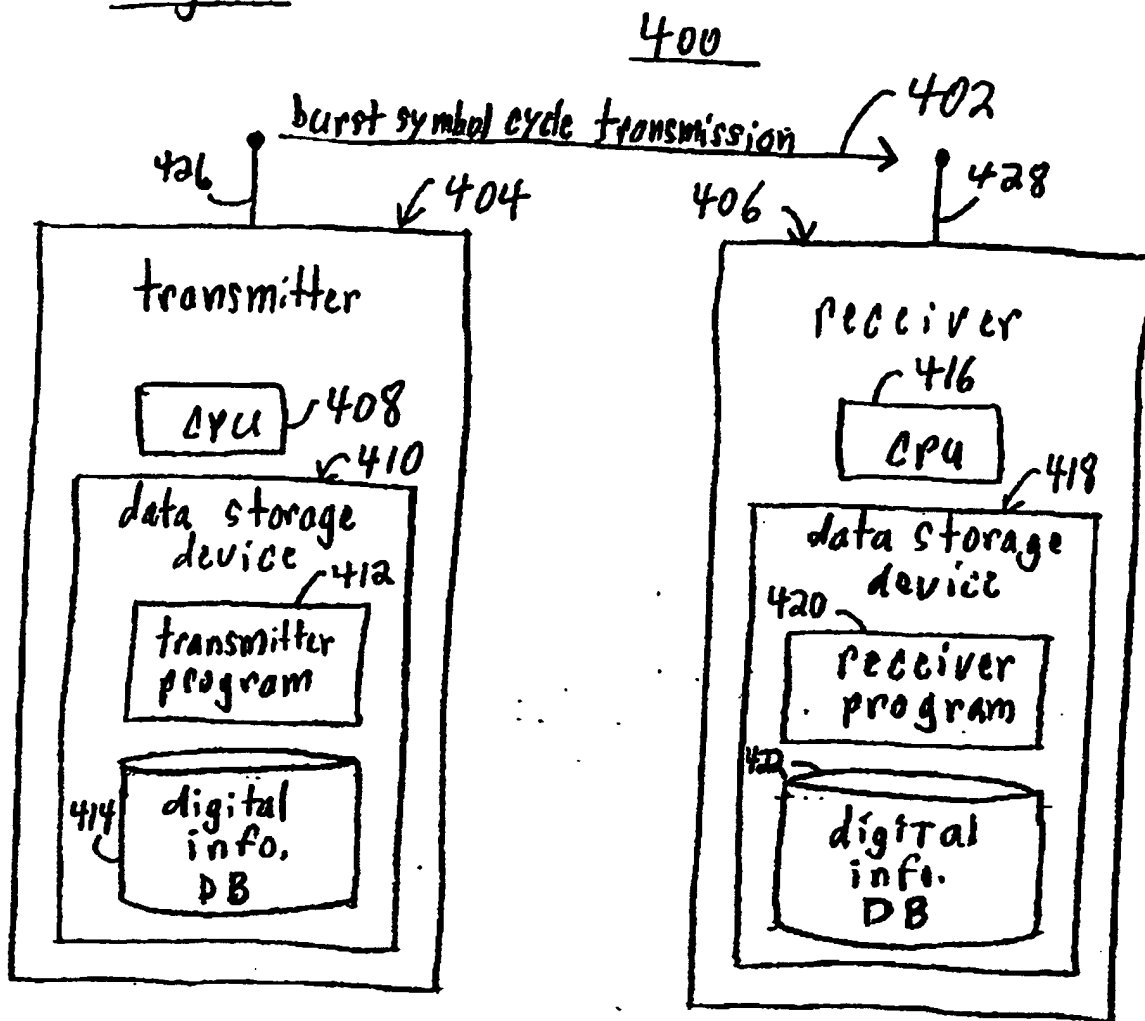 400
burst symbol cycle transmission
402
426
404
406
428
transmitter
receiver
CPU
408
416
CPU
410
418
data storage
device
412
transmitter
program
414
digital
info.
DB
data storage
device
420
receiver
program
422
digital
info.
DB